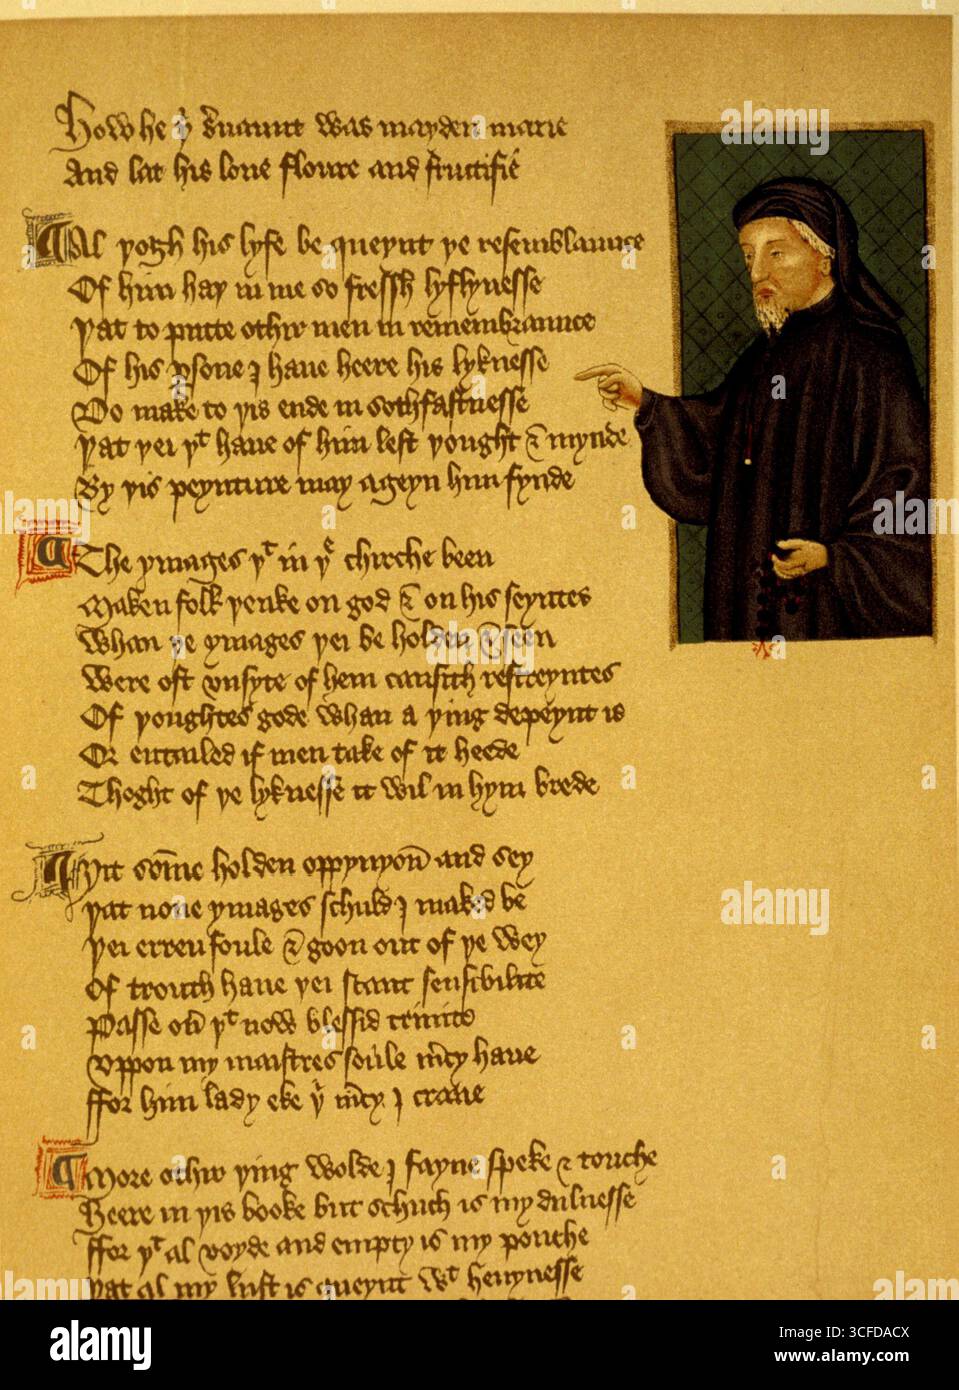 How he yͭ s̉uaunt was mayden marie
And lat his loue floure and fructifie
Al yogh his lyfe be queynt ye resemblaunce
Of him hay in me so fressh lyflynesse
yat to putte othir men in remembraunce
Of his psone I haue heere his lyknesse
Do make to yis ende in sothfastnesse
yat yei yͭ haue of him left yought & mynde
By yis peynture may ageyn him fynde
The ymages yͭ in yͤ chirche been
Maken folk yenke on god & on his seyntes
Whan ye ymages yei be holden & seen
Were oft vnsyte of hem causith restreyntes
Of youghtes gode whan a ying depeynt is
Or entailed if men take of it heede
Thoght of ye lyknesse it wil in hym brede
Yit some holden oppynyon and sey
yat none ymages schuld I maked be
yei erren foule & goon out of ye wey
Of trouth haue yei scant sensibilite
Passe ou yͭ now blessid trinite
Vppon my maistres soule mcy haue
ffor him lady eke yͥ mcy I craue
More othir ying wolde I fayne speke & touche
Heere in yis booke but schuch is my dulnesse
ffor yͭ al voyde and empty is my pouche
yat al my lust is queynt wͭ heuynesse
alamy
alamy
3CFDACX
www.alamy.com